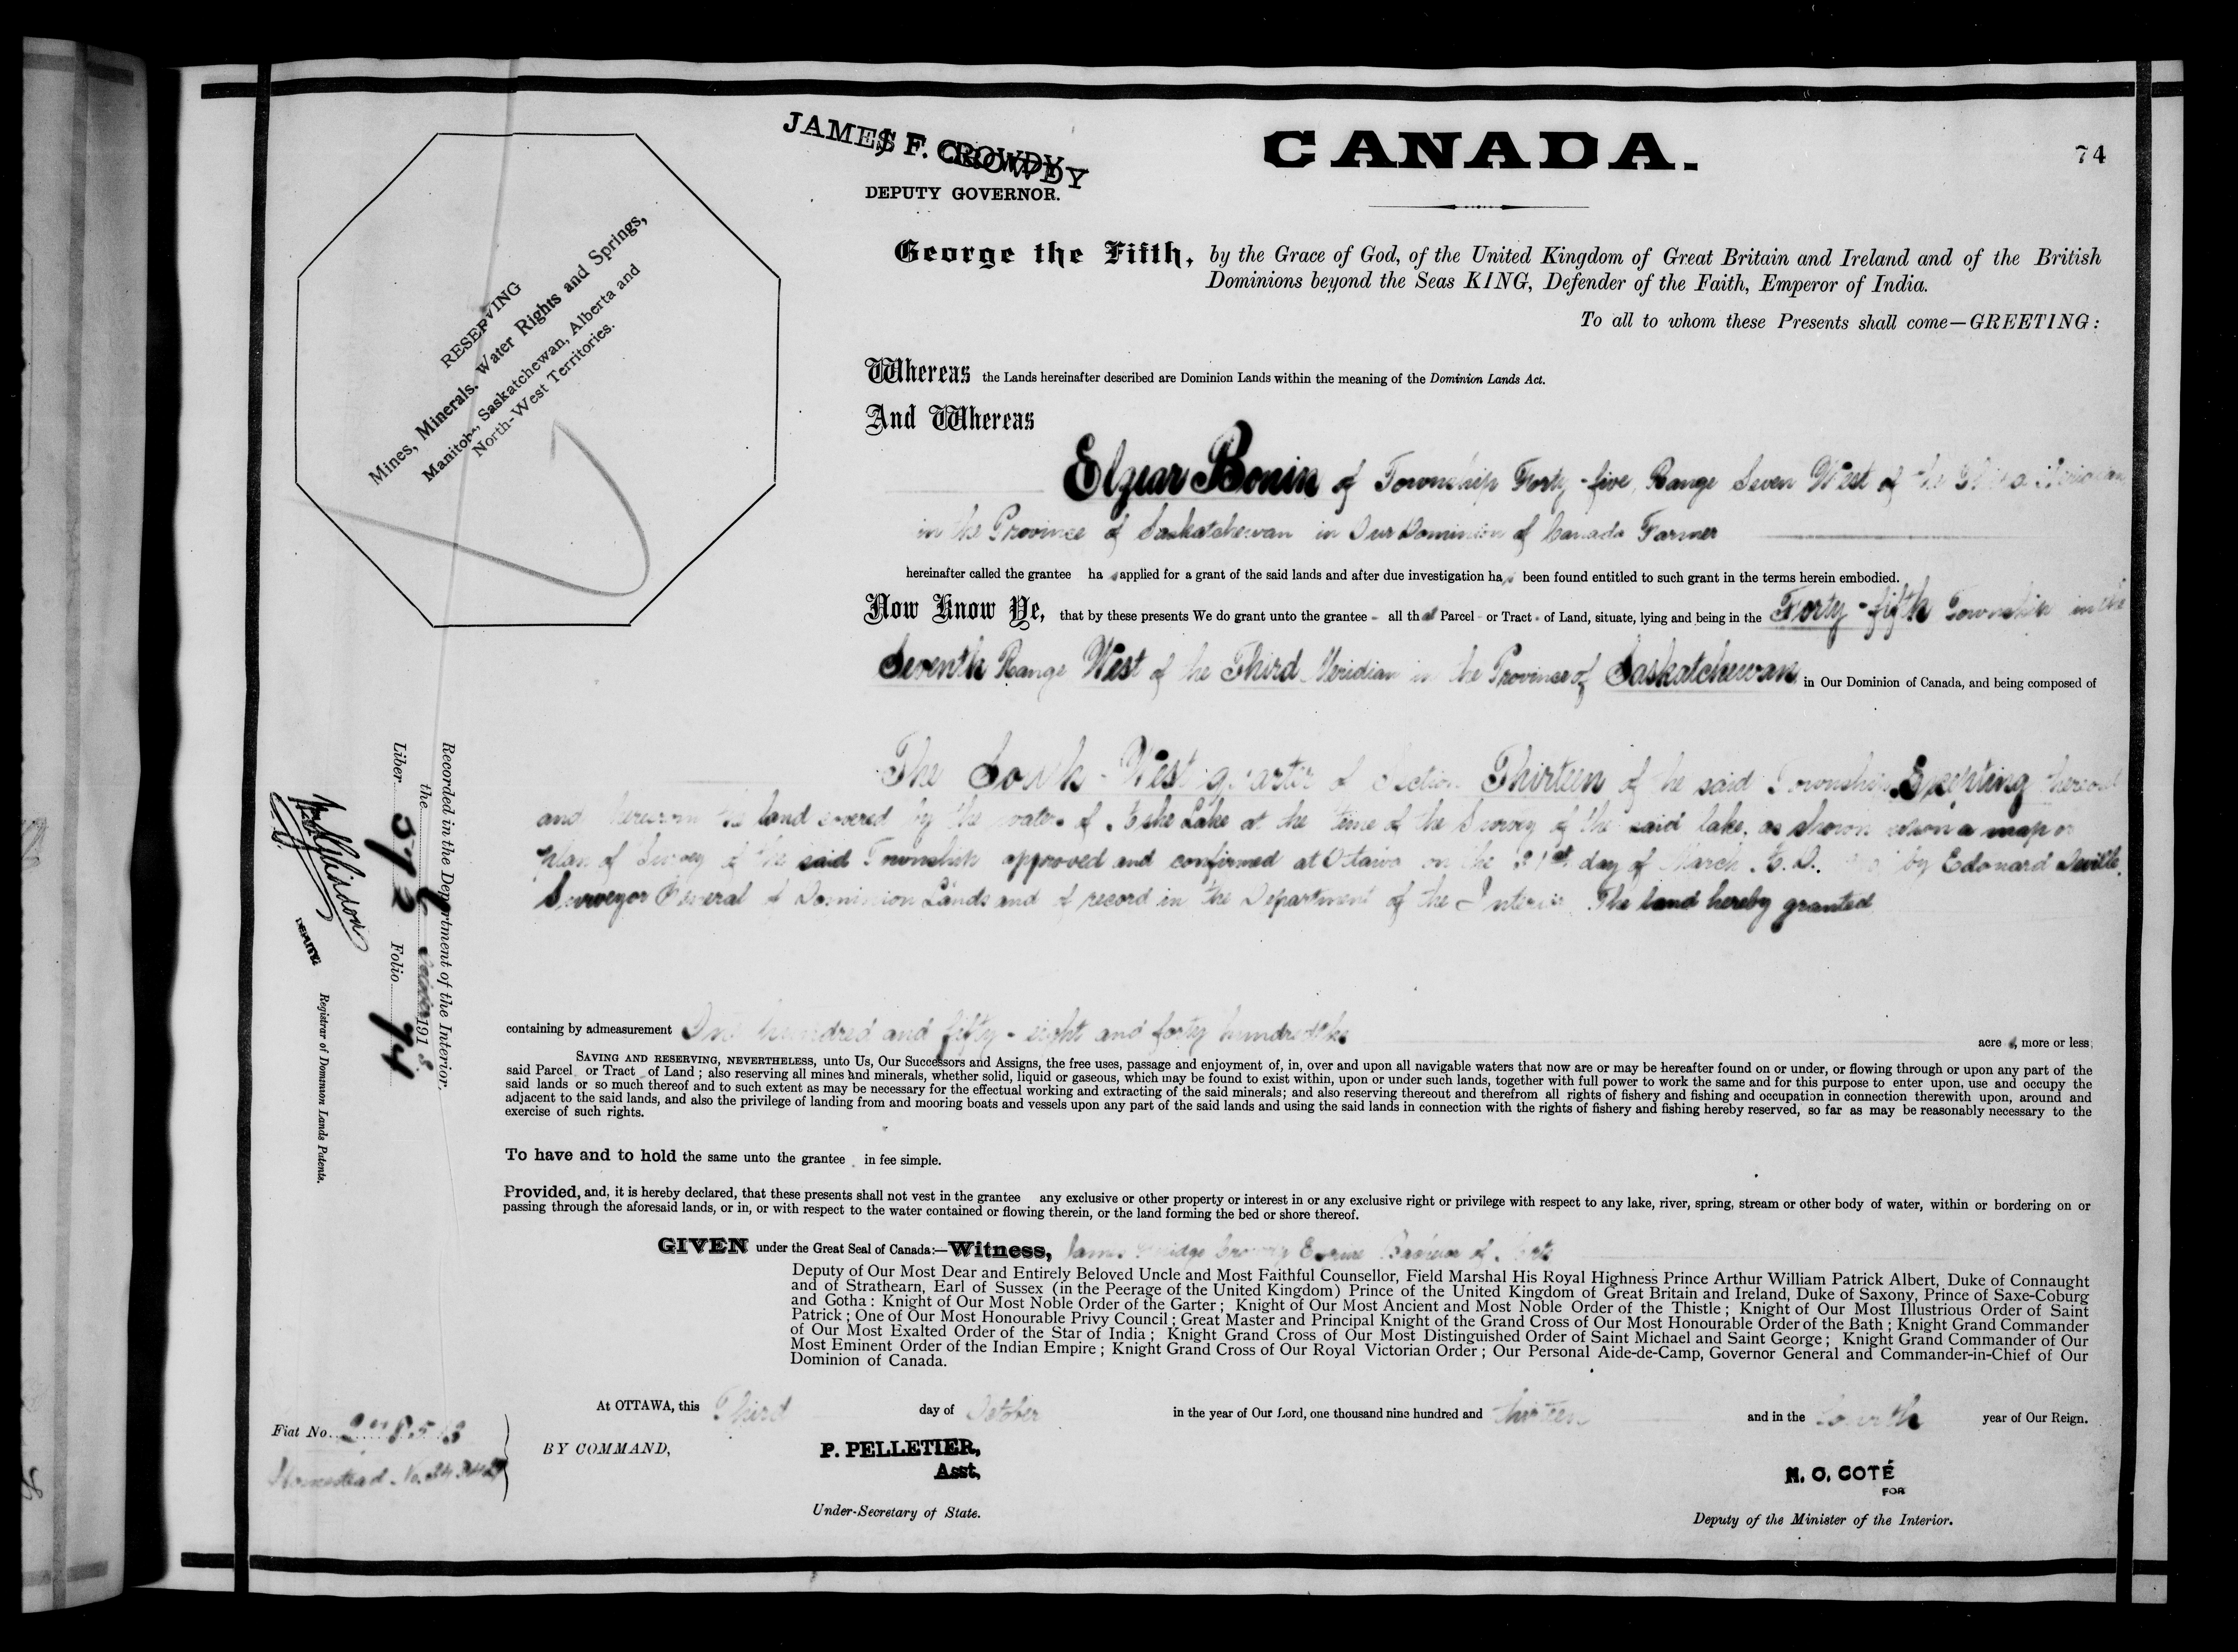 JAMES F. CROWDY
DEPUTY GOVERNOR.
CANADA.
74
RESERVING
Mines, Minerals, Water Rights and Springs,
Manitoba, Saskatchewan, Alberta and
North-West Territories.
George the Fifth, by the Grace of God, of the United Kingdom of Great Britain and Ireland and of the British
Dominions beyond the Seas KING, Defender of the Faith, Emperor of India.
To all to whom these Presents shall come—GREETING:
Whereas the Lands hereinafter described are Dominion Lands within the meaning of the Dominion Lands Act.
And Whereas
Elzear Bonin of Township Forty-five, Range Seven West of the Third Meridian
in the Province of Saskatchewan in Our Dominion of Canada Farmer
hereinafter called the grantee has applied for a grant of the said lands and after due investigation has been found entitled to such grant in the terms herein embodied.
Now Know Ye, that by these presents We do grant unto the grantee - all that Parcel or Tract of Land, situate, lying and being in the Forty-fifth Township in the
Seventh Range West of the Third Meridian in the Province of Saskatchewan in Our Dominion of Canada, and being composed of
The South-West quarter of Section Thirteen of the said Township Excepting thereout
and therefrom the land covered by the waters of Lake at the time of the Survey of the said lake, as shown upon a map or
plan of Survey of the said Township approved and confirmed at Ottawa on the 31st day of March A.D. by Edouard Deville,
Surveyor General of Dominion Lands and of record in the Department of the Interior. The land hereby granted
containing by admeasurement One hundred and fifty-eight and forty hundredths acres, more or less;
SAVING AND RESERVING, NEVERTHELESS, unto Us, Our Successors and Assigns, the free uses, passage and enjoyment of, in, over and upon all navigable waters that now are or may be hereafter found on or under, or flowing through or upon any part of the
said Parcel or Tract of Land; also reserving all mines and minerals, whether solid, liquid or gaseous, which may be found to exist within, upon or under such lands, together with full power to work the same and for this purpose to enter upon, use and occupy the
said lands or so much thereof and to such extent as may be necessary for the effectual working and extracting of the said minerals; and also reserving thereout and therefrom all rights of fishery and fishing and occupation in connection therewith upon, around and
adjacent to the said lands, and also the privilege of landing from and mooring boats and vessels upon any part of the said lands and using the said lands in connection with the rights of fishery and fishing hereby reserved, so far as may be reasonably necessary to the
exercise of such rights.
To have and to hold the same unto the grantee in fee simple.
Provided, and, it is hereby declared, that these presents shall not vest in the grantee any exclusive or other property or interest in or any exclusive right or privilege with respect to any lake, river, spring, stream or other body of water, within or bordering on or
passing through the aforesaid lands, or in, or with respect to the water contained or flowing therein, or the land forming the bed or shore thereof.
GIVEN under the Great Seal of Canada:—Witness, James Crowdy Esquire Bachelor of Arts
Deputy of Our Most Dear and Entirely Beloved Uncle and Most Faithful Counsellor, Field Marshal His Royal Highness Prince Arthur William Patrick Albert, Duke of Connaught
and of Strathearn, Earl of Sussex (in the Peerage of the United Kingdom) Prince of the United Kingdom of Great Britain and Ireland, Duke of Saxony, Prince of Saxe-Coburg
and Gotha: Knight of Our Most Noble Order of the Garter; Knight of Our Most Ancient and Most Noble Order of the Thistle; Knight of Our Most Illustrious Order of Saint
Patrick; One of Our Most Honourable Privy Council; Great Master and Principal Knight of the Grand Cross of Our Most Honourable Order of the Bath; Knight Grand Commander
of Our Most Exalted Order of the Star of India; Knight Grand Cross of Our Most Distinguished Order of Saint Michael and Saint George; Knight Grand Commander of Our
Most Eminent Order of the Indian Empire; Knight Grand Cross of Our Royal Victorian Order; Our Personal Aide-de-Camp, Governor General and Commander-in-Chief of Our
Dominion of Canada.
At OTTAWA, this Third day of October in the year of Our Lord, one thousand nine hundred and thirteen and in the fourth year of Our Reign.
BY COMMAND,
P. PELLETIER,
Asst.
Under-Secretary of State.
N. O. COTÉ
FOR
Deputy of the Minister of the Interior.
Fiat No.
Homestead No.
Recorded in the Department of the Interior,
the October 191
Liber Folio 74
DEPUTY
Registrar of Dominion Lands Patents.